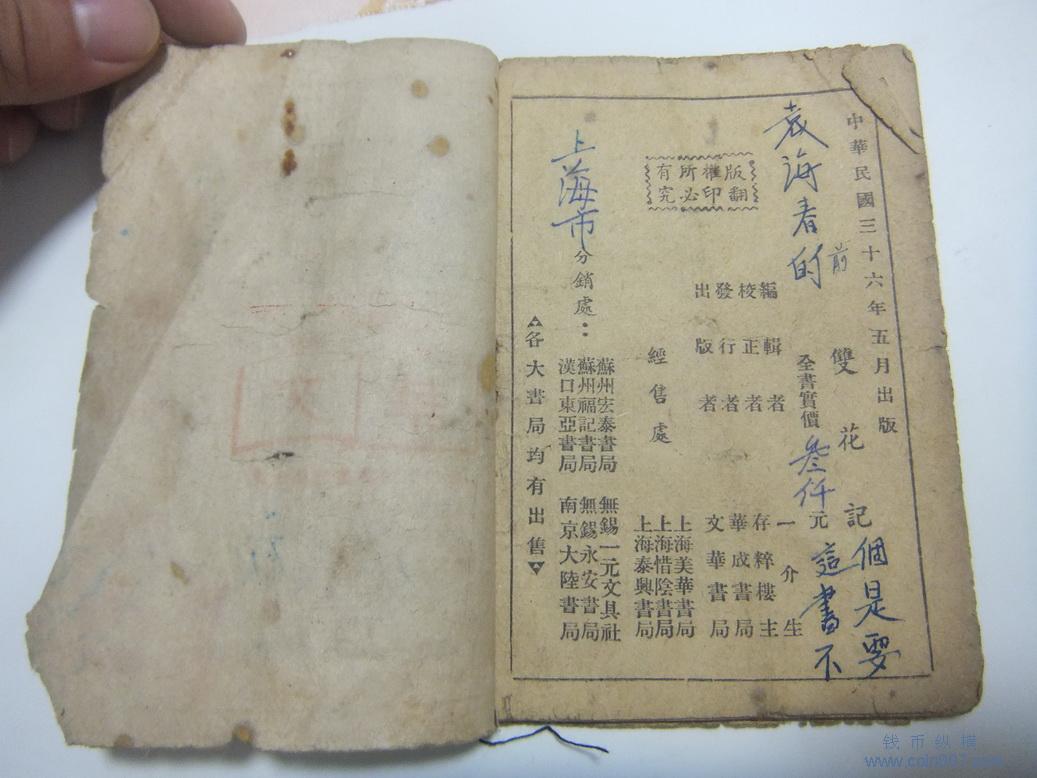 中華民國三十六年五月出版
前雙花記
全書實價叁仟元
袁海春的
個是要
這書不
版權所有
翻印必究
編輯者 一介生
校正者 存粹樓主
發行者 華成書局
出版者 文華書局
經售處
上海美華書局
上海惜陰書局
上海泰興書局
上海市分銷處：
蘇州宏泰書局 無錫一元文具社
蘇州福記書局 無錫永安書局
漢口東亞書局 南京大陸書局
各大書局均有出售
钱币纵横
www.coin007.com